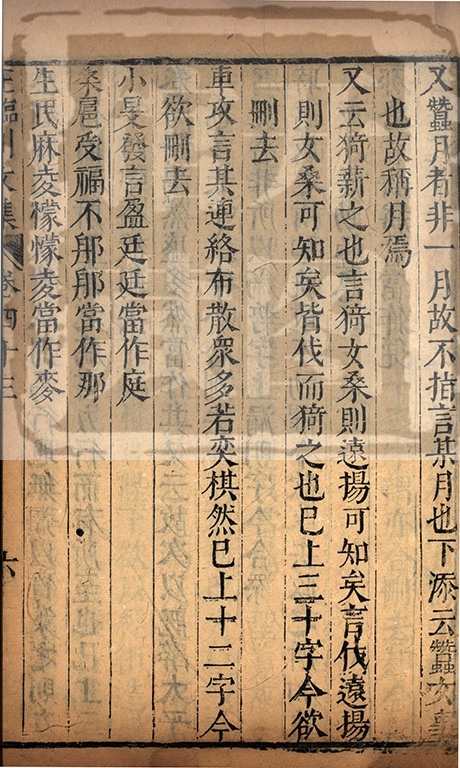 又蠶月者非一月故不指言某月也下添云蠶
也故稱月焉
又云猗薪之也言猗女桑則遠揚可知矣言伐遠揚
則女桑可知矣皆伐而猗之也巳上三十字今欲
刪去
車攻言其連絡布散衆多若奕棋然巳上十二字今
欲刪去
小旻發言盈廷廷當作庭
桑扈受福不那那當作那
生民麻麦懞懞麦當作麥
王臨川文集 卷四十三 六